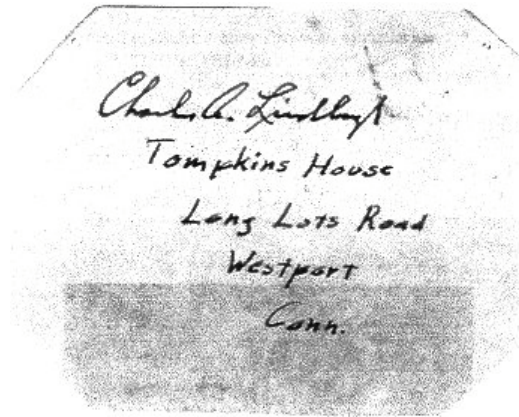 Charles A. Lindbergh
Tompkins House
Long Lots Road
Westport
Conn.